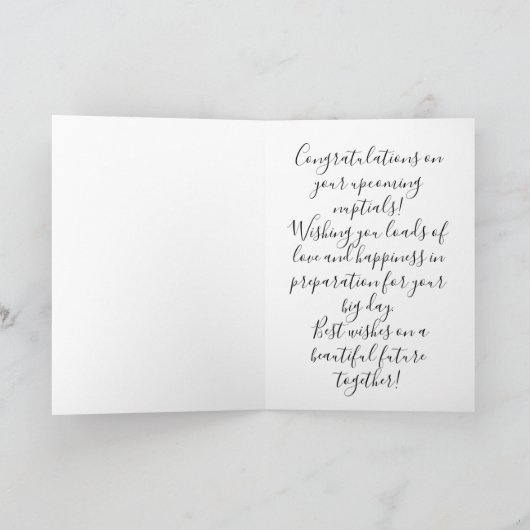 Congratulations on
your upcoming
nuptials!
Wishing you loads of
love and happiness in
preparation for your
big day.
Best wishes on a
beautiful future
together!